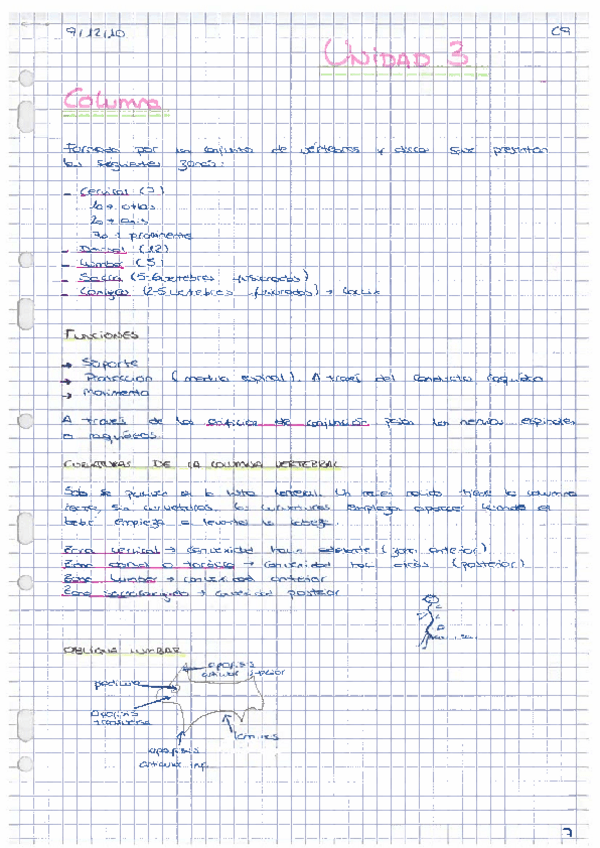 9/12/10
C9
UNIDAD 3
Columna
Formada por un conjunto de vértebras y discos que presentan
las siguientes zonas:
- Cervical (7)
1ª → atlas
2ª → axis
7ª → prominente
- Dorsal (12)
- Lumbar (5)
- Sacra (5-6 vertebras fusionadas)
- Coxígea (2-5 vertebras fusionadas) → coccix
FUNCIONES
→ Soporte
→ Protección (medula espinal). A través del conducto raquídeo
→ Movimiento
A través de los orificios de conjunción salen los nervios espinales
o raquídeos.
CURVATURAS DE LA COLUMNA VERTEBRAL
Sólo se pueden en la vista lateral. Un recien nacido tiene la columna
recta, sin curvaturas. Las curvaturas empieza aparecer cuando el
bebé empieza a levantar la cabeza.
Zona cervical → convexidad hacia adelante (zona anterior)
Zona dorsal o torácica → convexidad hacia atrás (posterior)
Zona lumbar → convexidad anterior
Zona sacrocoxígea → convexidad posterior
OBLICUA LUMBAR
apofisis
articular superior
pediculo
apofisis
transversa
laminas
apofisis
articular inf.
7